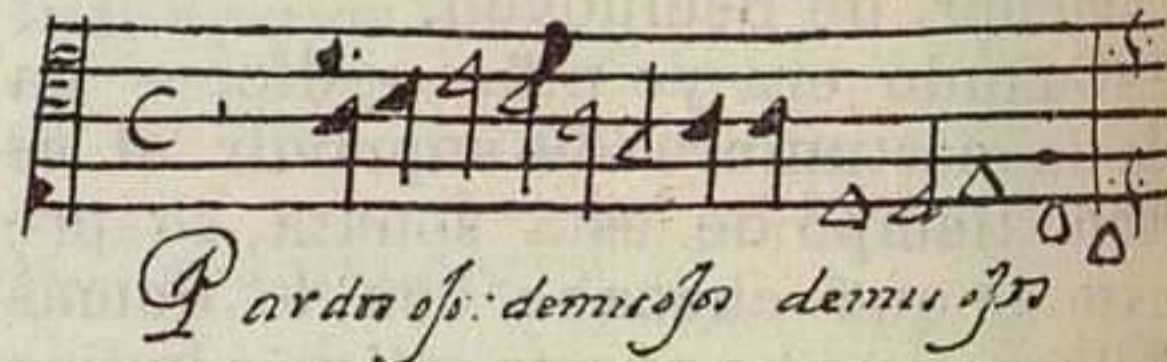 Pardos ojo: demis ojos demis ojos